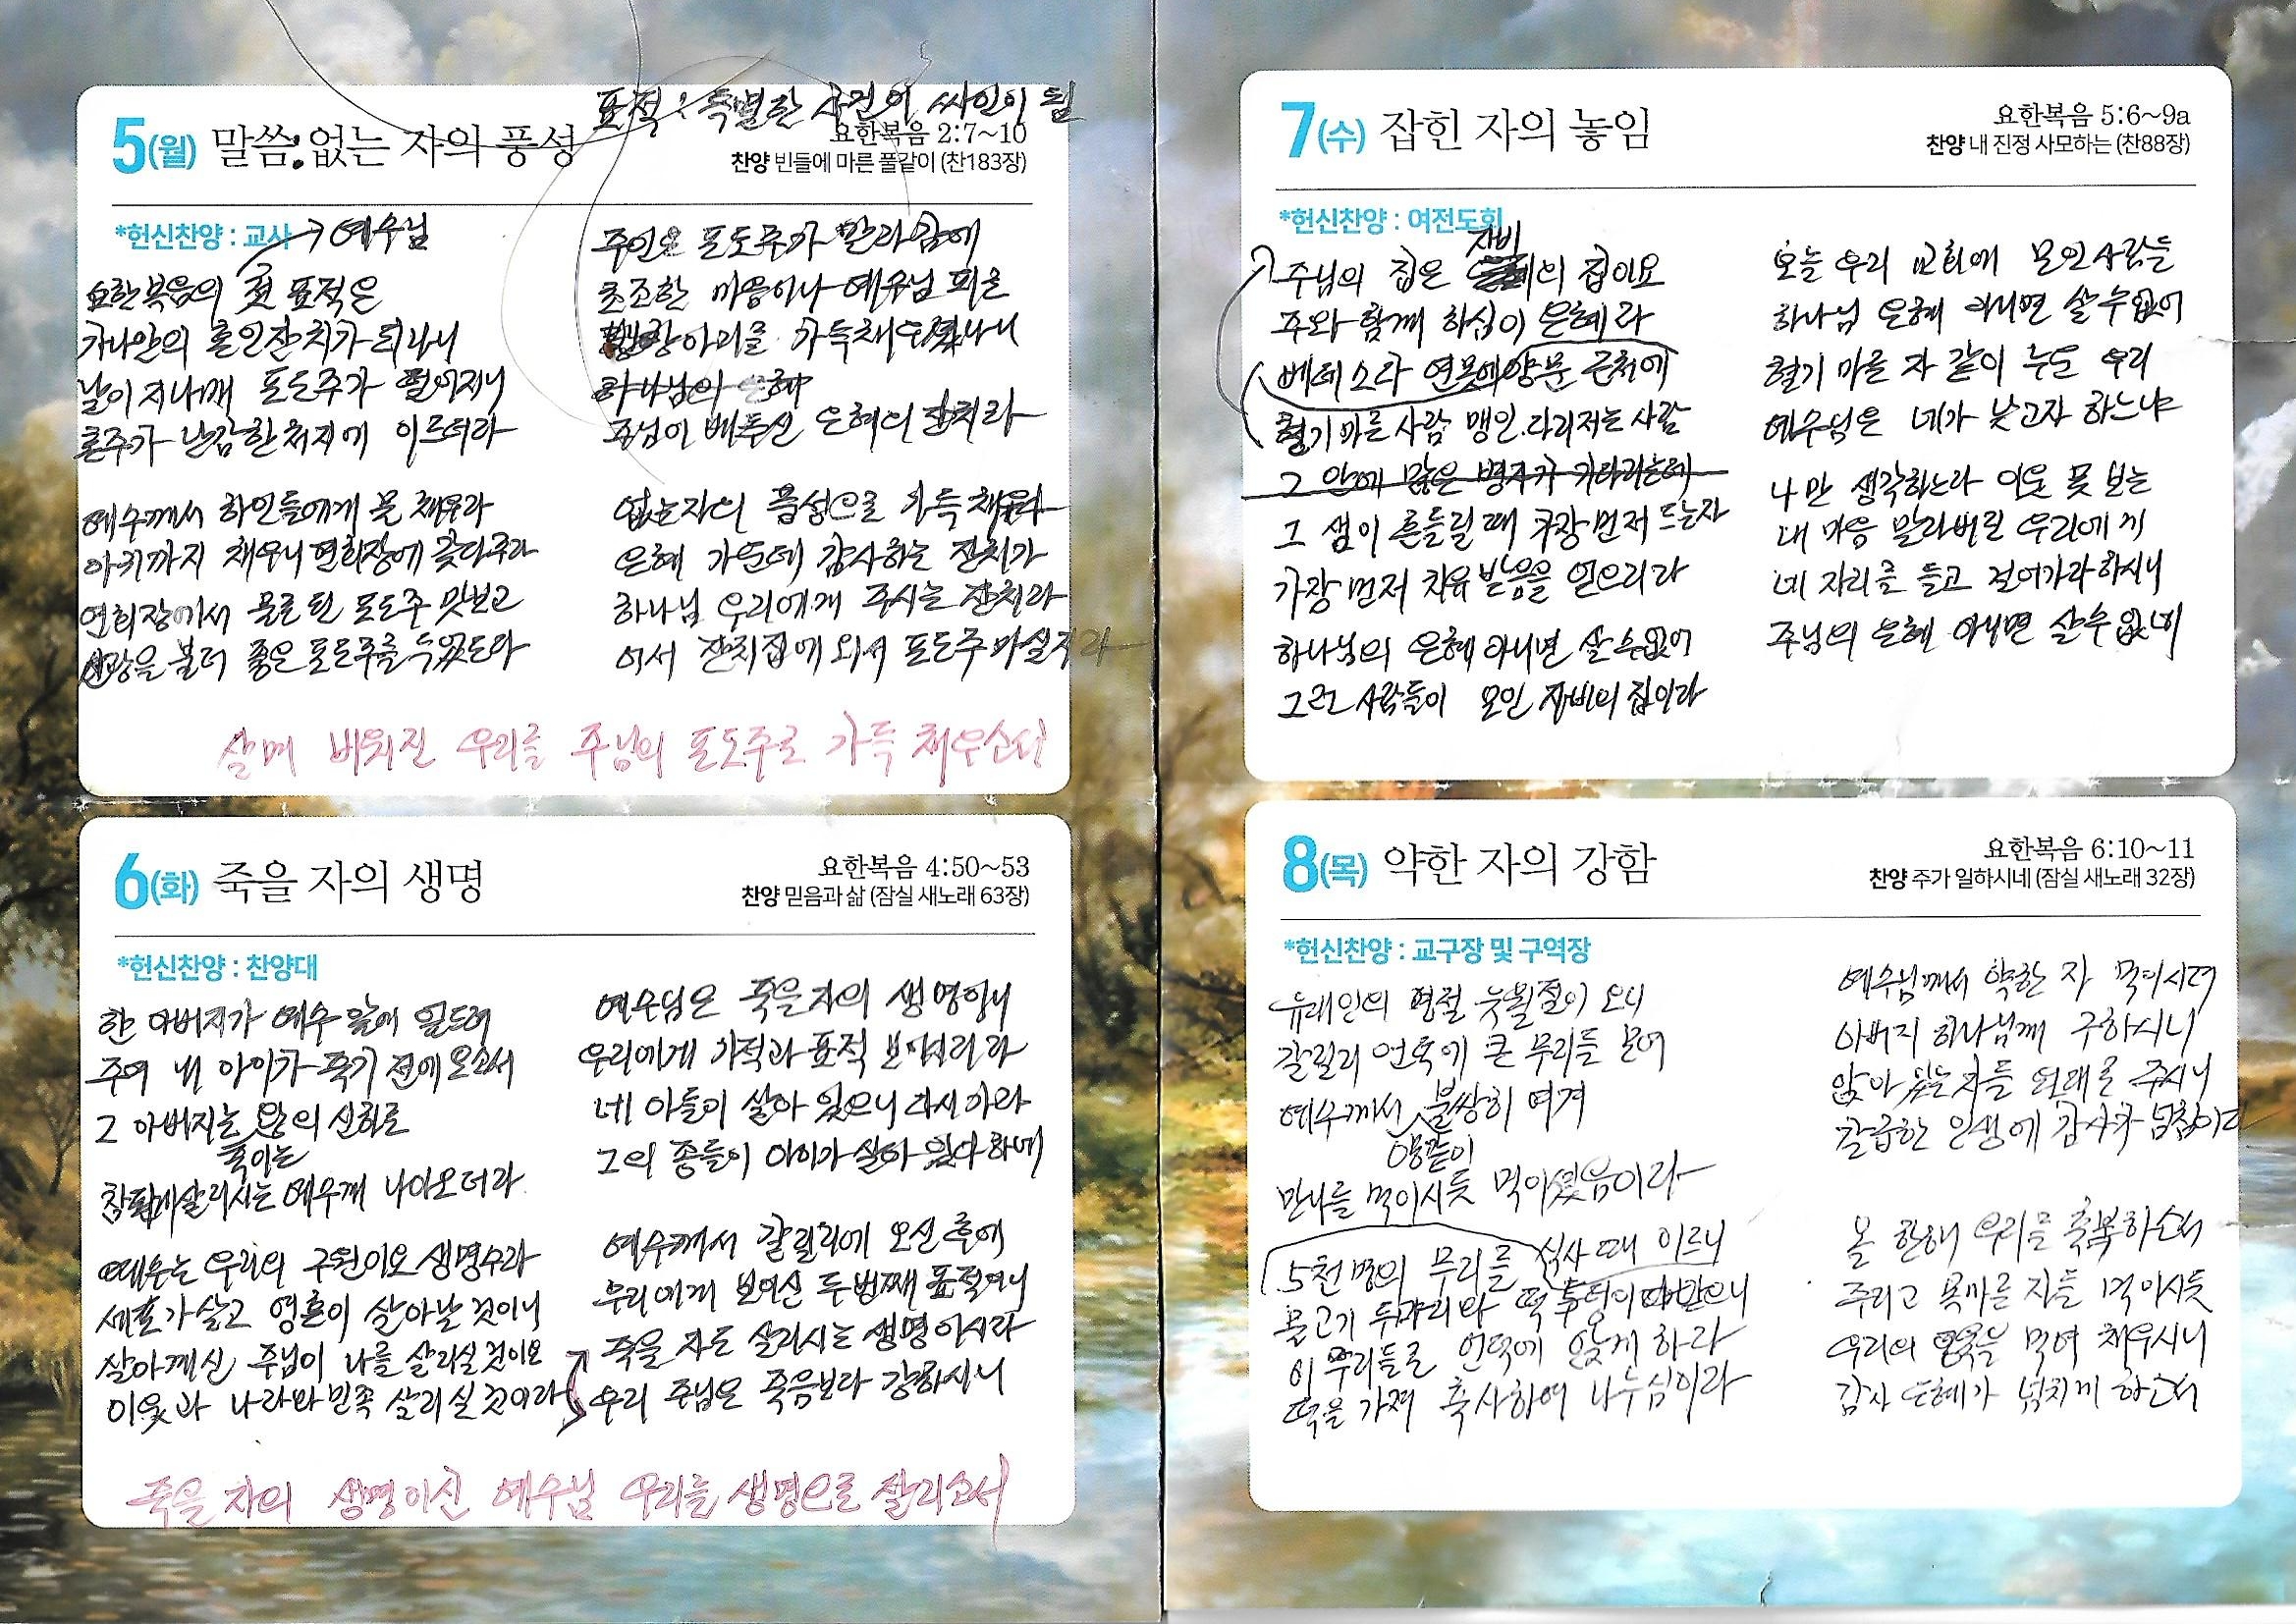 표적 : 특별한 사건이 싸인이 됨
5(월) 말씀:없는 자의 풍성
요한복음 2:7~10
찬양 빈들에 마른 풀같이 (찬183장)
*헌신찬양 : 교사 → 예수님
요한복음의 첫 표적은
가나안의 혼인잔치가 되나니
날이 지나매 포도주가 떨어지니
혼주가 난감한 처지에 이르더라
예수께서 하인들에게 물 채우라
아귀까지 채우니 연회장에 갖다주라
연회장께서 물로 된 포도주 맛보고
신랑을 불러 좋은 포도주를 두었도다
주인은 포도주가 말라감에
초조한 마음이나 예수님 피로
항아리를 가득채우셨나니
하나님의 은혜
주님이 베푸신 은혜의 잔치라
없는자의 풍성으로 가득 채워라
은혜 가운데 감사하는 잔치가
하나님 우리에게 주시는 잔치라
어서 잔치집에 와서 포도주 마실지라
삶에 비워진 우리를 주님의 포도주로 가득 채우소서
6(화) 죽을 자의 생명
요한복음 4:50~53
찬양 믿음과 삶 (잠실 새노래 63장)
*헌신찬양 : 찬양대
한 아버지가 예수 앞에 엎드려
주여 내 아이가 죽기 전에 오소서
그 아버지는 왕의 신하로
죽이는
살리시는 예수께 나아오더라
예수는 우리의 구원이요 생명수라
세포가 살고 영혼이 살아날 것이니
살아계신 주님이 나를 살리실 것이요
이웃과 나라와 민족 살리실 것이라
예수님은 죽을자의 생명이니
우리에게 기적과 표적 보여시리라
네 아들이 살아 있으니 다시 가라
그의 종들이 아이가 살아 있다 하네
예수께서 갈릴리에 오신 후에
우리에게 보이신 두번째 표적이니
죽을 자도 살리시는 생명이시라
우리 주님은 죽음보다 강하시니
죽을 자의 생명이신 예수님 우리를 생명으로 살리소서
7(수) 잡힌 자의 놓임
요한복음 5:6~9a
찬양 내 진정 사모하는 (찬88장)
*헌신찬양 : 여전도회
자비
주님의 집은 은혜의 집이요
주와 함께 하심이 은혜라
베데스다 연못에 양문 근처에
혈기 마른 사람 맹인.다리저는 사람
그 안에 많은 병자가 기다리는데
그 샘이 흔들릴 때 가장 먼저 드는자
가장 먼저 치유 받음을 얻으리라
하나님의 은혜 아니면 살수없어
그런 사람들이 모인 자비의 집이라
오늘 우리 교회에 모인 사람들
하나님 은혜 아니면 살수없어
혈기 마른 자 같이 누운 우리
예수님은 네가 낫고자 하느냐
나만 생각하느라 이웃 못 보는
내 마음 말라버린 우리에게
네 자리를 들고 걸어가라하시니
주님의 은혜 아니면 살수 없네
8(목) 약한 자의 강함
요한복음 6:10~11
찬양 주가 일하시네 (잠실 새노래 32장)
*헌신찬양 : 교구장 및 구역장
유대인의 명절 유월절이 오니
갈릴리 언덕에 큰 무리들 모여
예수께서 불쌍히 여겨
양같이
만나를 먹이시듯 먹이셨음이라
5천명의 무리를 식사 때 이르니
물고기 두마리와 떡
이 무리들로 언덕에 앉게 하라
떡을 가져 축사하여 나누심이라
예수님께서 약한 자 먹이시려
아버지 하나님께 구하시니
앉아 있는 자들 원대로 주시니
갈급한 인생에 감사가 넘침이라
올 한해 우리를 축복하소서
주리고 목마른 자들 먹이시듯
우리의 영혼을 먹여 채우시니
감사 은혜가 넘치게 하소서